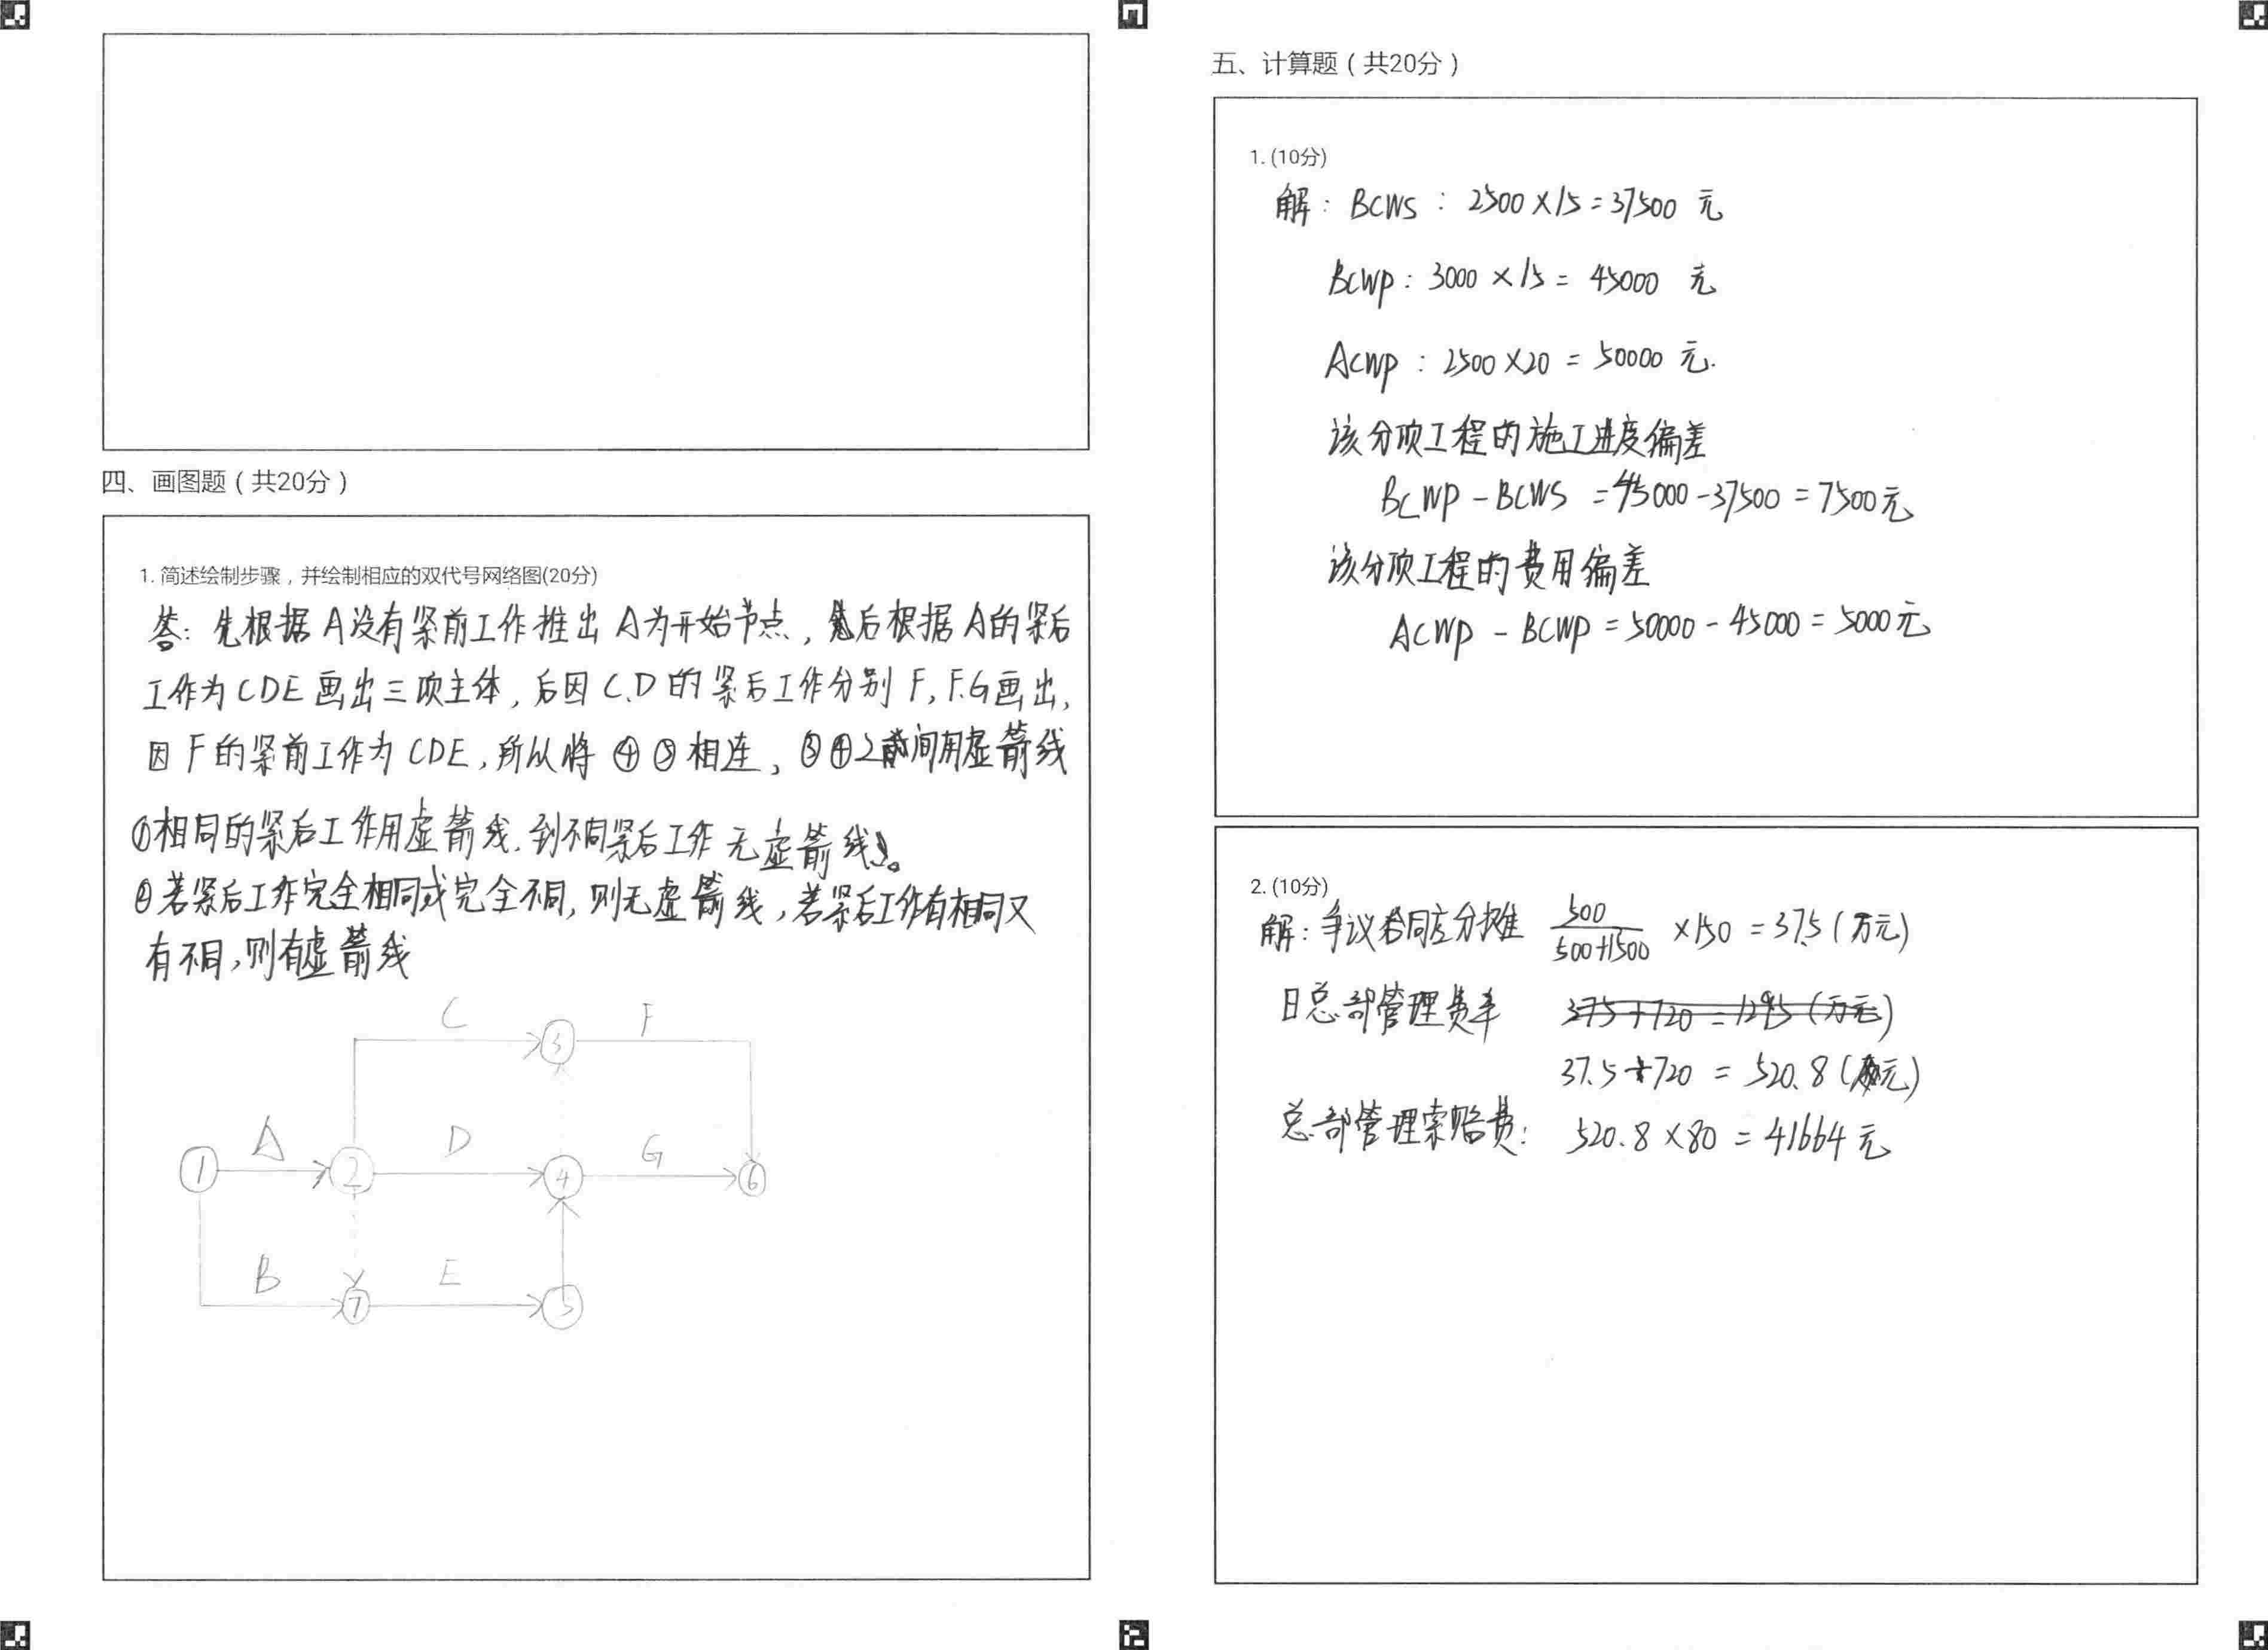 四、画图题（共20分）
1. 简述绘制步骤，并绘制相应的双代号网络图(20分)
答：先根据A没有紧前工作推出A为开始节点，后根据A的紧后
工作为CDE画出三项主体，后因C、D的紧后工作分别F，F、G画出，
因F的紧前工作为CDE，所以将④⑤相连，③④之间用虚箭线
①相同的紧后工作用虚箭线，到不同紧后工作无虚箭线。
②若紧后工作完全相同或完全不同，则无虚箭线，若紧后工作有相同又
有不同，则有虚箭线
C
3
F
A
D
G
1
2
4
6
B
E
7
5
五、计算题（共20分）
1. (10分)
解：BCWS：2500×15=37500 元
BCWP：3000×15= 45000 元
ACWP：2500×20 = 50000 元.
该分项工程的施工进度偏差
BCWP-BCWS =45000-37500=7500元
该分项工程的费用偏差
ACWP - BCWP=50000-45000=5000元
2. (10分)
解：争议合同应分摊 500/500+1500 ×150=37.5(万元)
日总部管理费率
37.5÷720 = 520.8(元)
总部管理索赔费：520.8×80=41664元